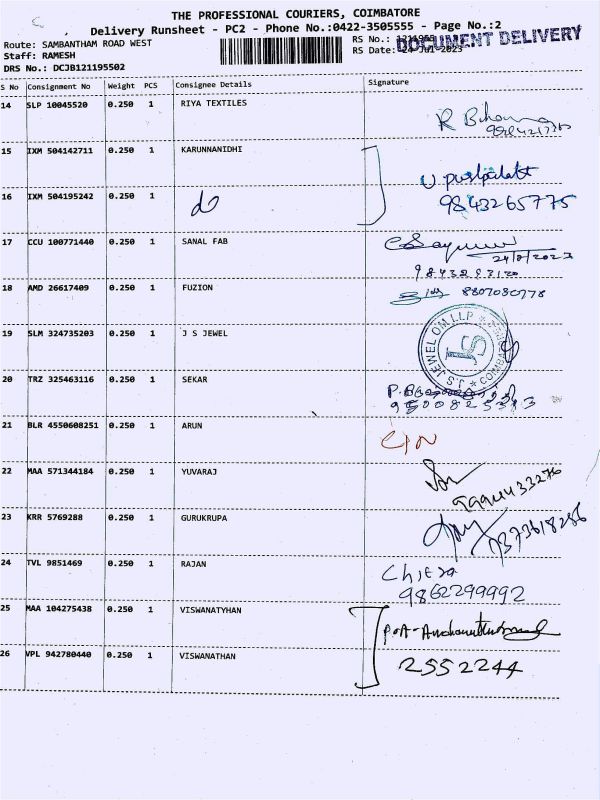 THE PROFESSIONAL COURIERS, COIMBATORE
Delivery Runsheet - PC2 - Phone No.:0422-3505555 - Page No.:2
Route: SAMBANTHAM ROAD WEST
RS No.:
DOCUMENT DELIVERY
Staff: RAMESH
RS Date: 24-Jul-2023
DRS No.: DCJB121195502
S No Consignment No Weight PCS Consignee Details Signature
14 SLP 10045520 0.250 1 RIYA TEXTILES
15 IXM 504142711 0.250 1 KARUNNANIDHI
16 IXM 504195242 0.250 1 do
9843265775
17 CCU 100771440 0.250 1 SANAL FAB
18 AMD 26617409 0.250 1 FUZION
8807030778
19 SLM 324735203 0.250 1 J S JEWEL
J.S JEWEL OM LLP
JS
20 TRZ 325463116 0.250 1 SEKAR
21 BLR 4550608251 0.250 1 ARUN
22 MAA 571344184 0.250 1 YUVARAJ
23 KRR 5769288 0.250 1 GURUKRUPA
24 TVL 9851469 0.250 1 RAJAN
Chitra
9862299992
25 MAA 104275438 0.250 1 VISWANATYHAN
26 VPL 942780440 0.250 1 VISWANATHAN
2552244